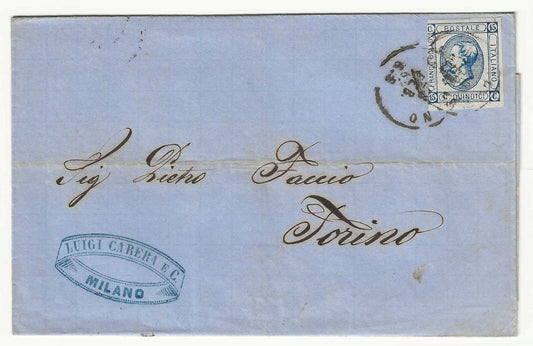 C POSTALE 15
FRANCO BOLLO
ITALIANO
15 QUINDICI C
NO
Sig Pietro Faccio
Torino
LUIGI CARERA E C.
MILANO